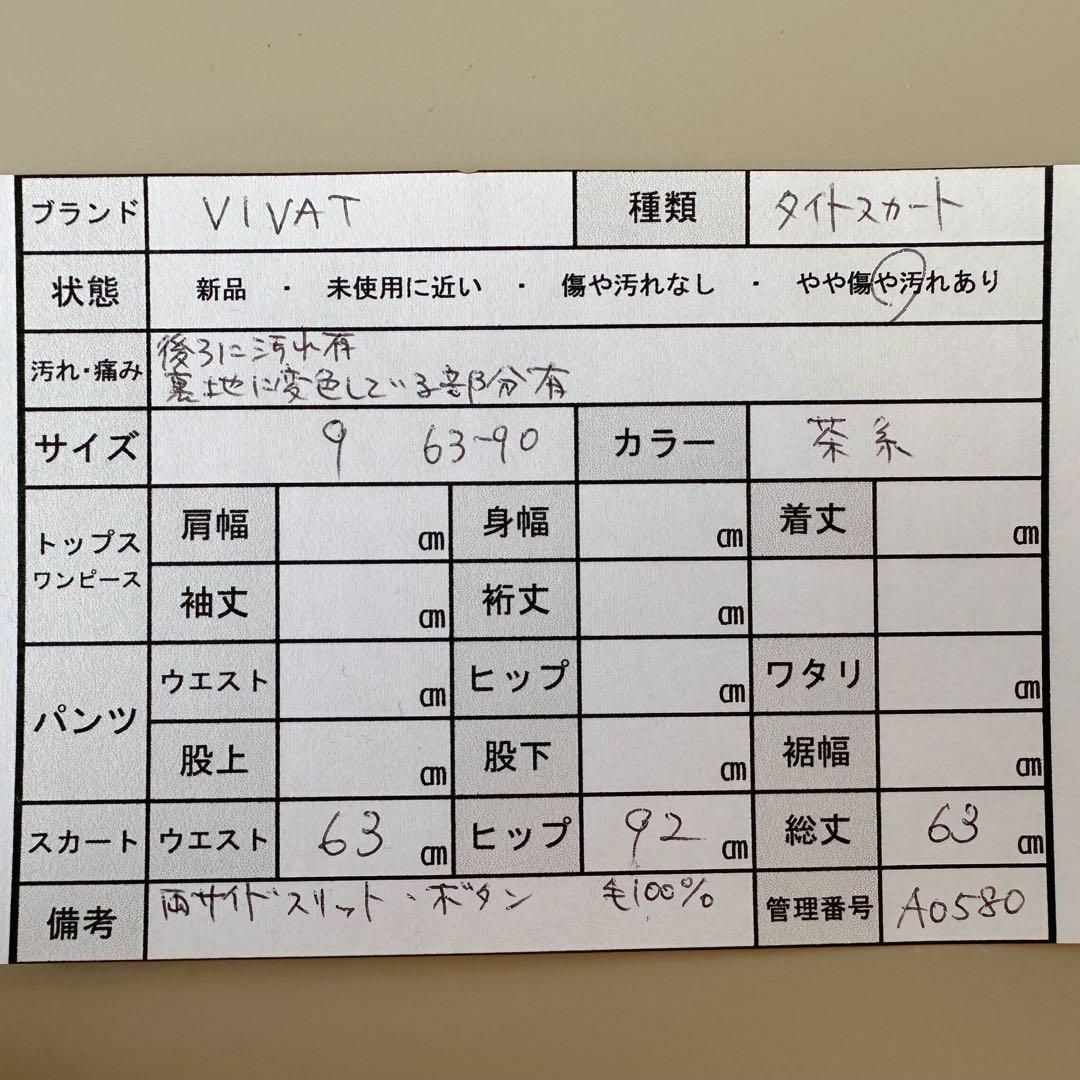 ブランド VIVAT 種類 タイトスカート
状態 新品 ・ 未使用に近い ・ 傷や汚れなし ・ やや傷や汚れあり
汚れ・痛み 後ろに汚れ有
裏地に変色している部分有
サイズ 9 63-90 カラー 茶系
トップス ワンピース 肩幅 ㎝ 身幅 ㎝ 着丈 ㎝
袖丈 ㎝ 裄丈 ㎝
パンツ ウエスト ㎝ ヒップ ㎝ ワタリ ㎝
股上 ㎝ 股下 ㎝ 裾幅 ㎝
スカート ウエスト 63 ㎝ ヒップ 92 ㎝ 総丈 63 ㎝
備考 両サイドスリット・ボタン 毛100% 管理番号 A0580